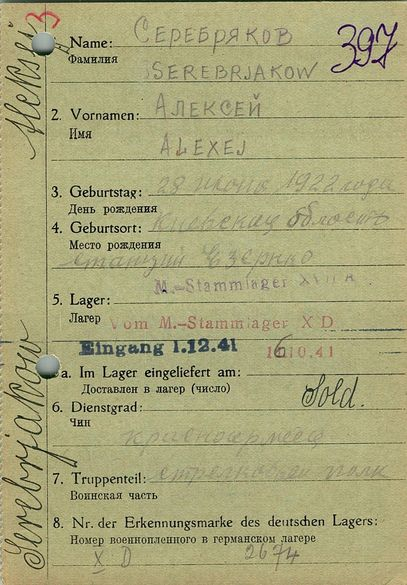 3
397
Name: СЕРЕБРЯКОВ
Фамилия
SEREBRJAKOW
2. Vornamen: АЛЕКСЕЙ
Имя
ALEXEJ
3. Geburtstag: 28 июня 1922 года
День рождения
4. Geburtsort: Киевская область
Место рождения
станция
M.-Stammlager
5. Lager:
Лагерь
Vom M.-Stammlager X D
Eingang 1.12.41
10.41
a. Im Lager eingeliefert am:
Доставлен в лагерь (число)
Sold.
6. Dienstgrad:
Чин
красноармеец
7. Truppenteil: стрелковый полк
Воинская часть
8. Nr. der Erkennungsmarke des deutschen Lagers:
Номер военнопленного в германском лагере
X D 2674
Serebrjakow Aleksej